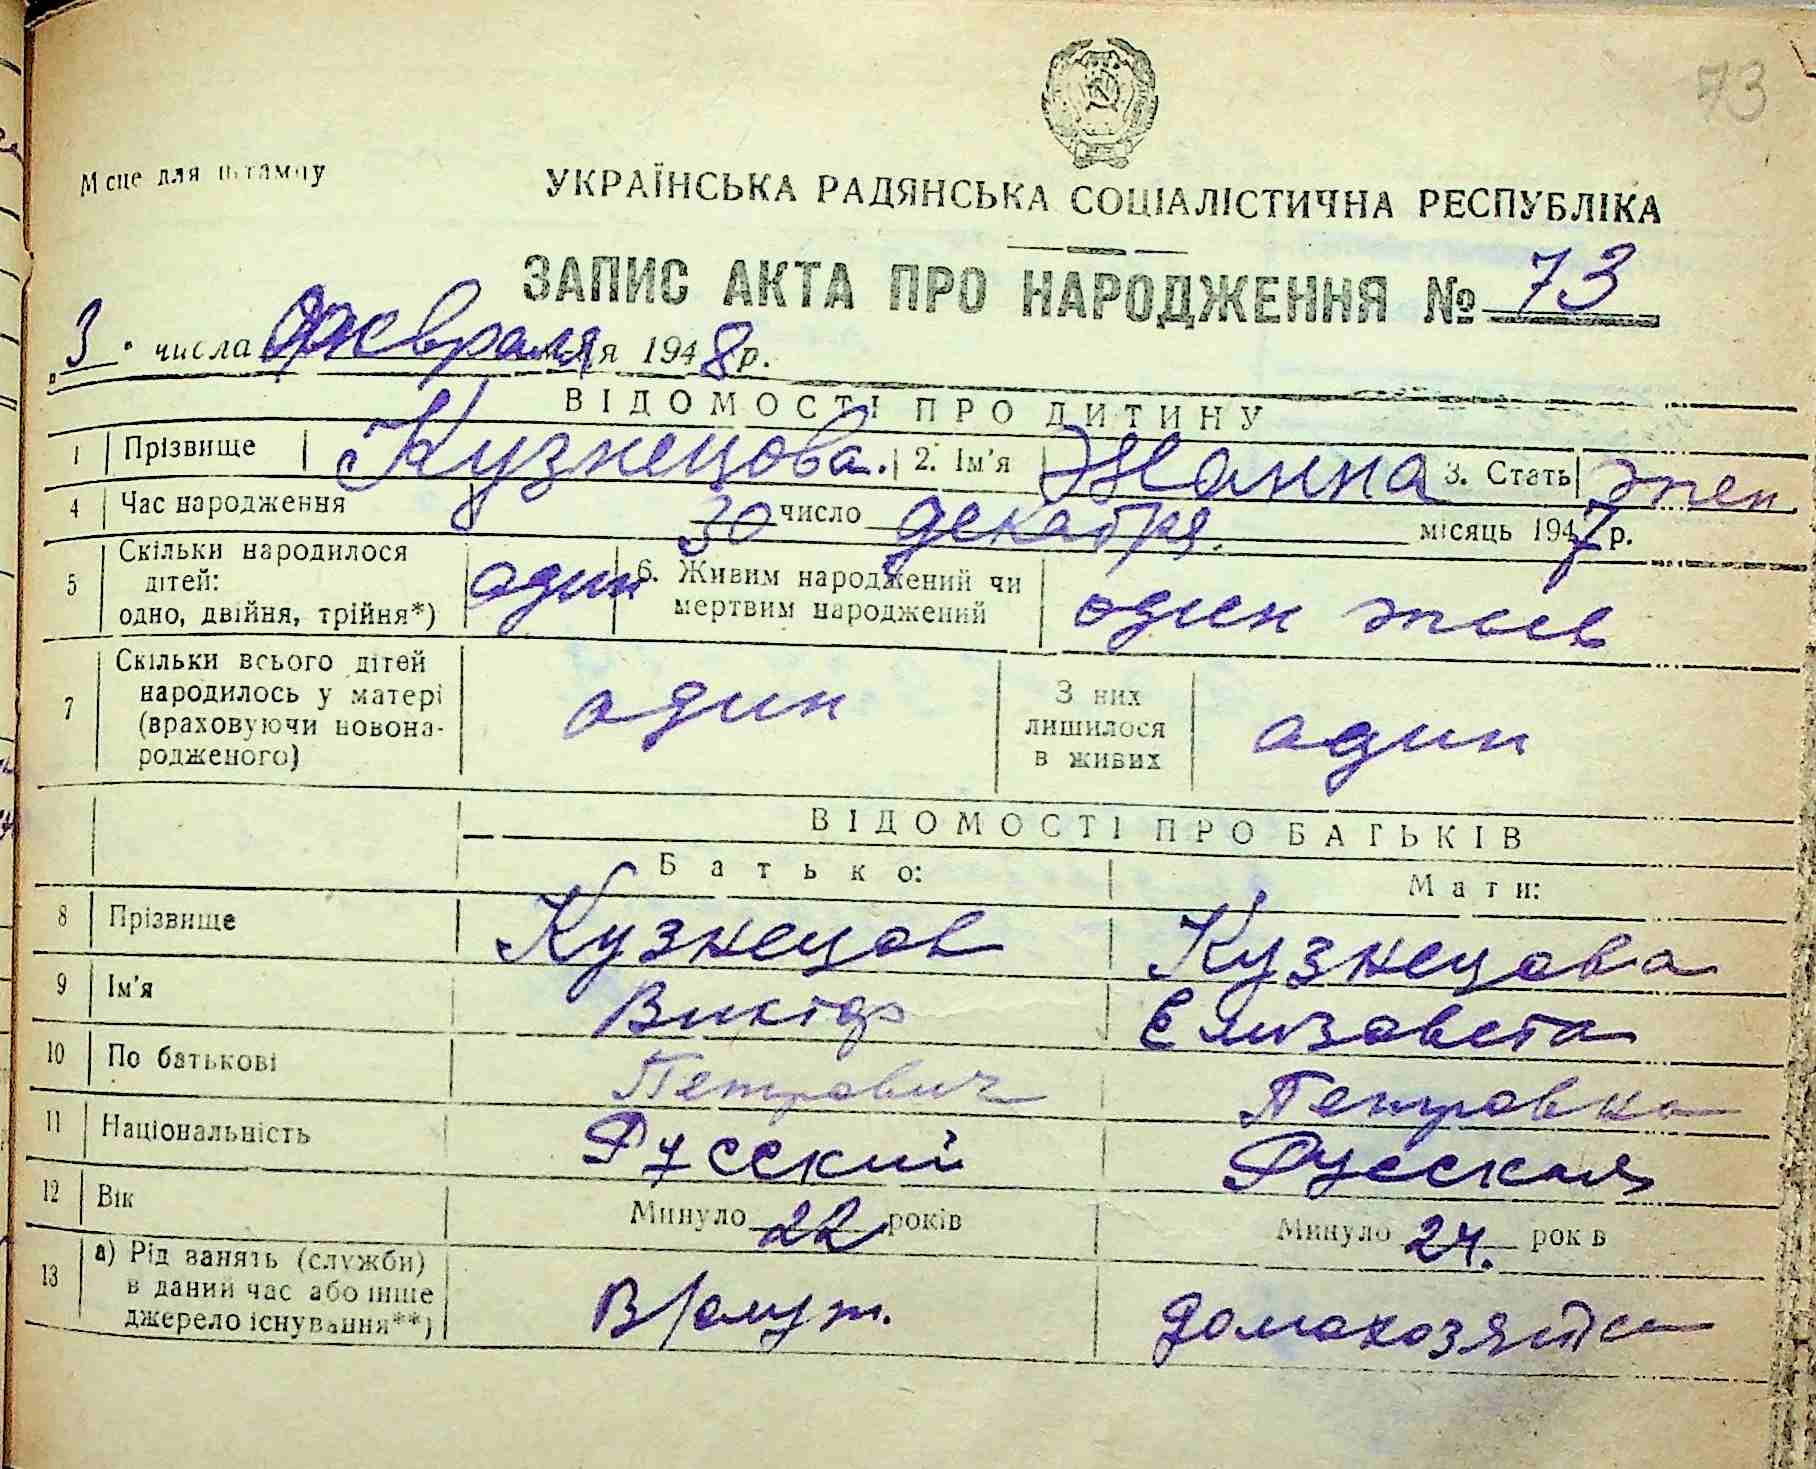 73
Місце для штампу
УКРАЇНСЬКА РАДЯНСЬКА СОЦІАЛІСТИЧНА РЕСПУБЛІКА
ЗАПИС АКТА ПРО НАРОДЖЕННЯ № 73
3 числа февраля 1948 р.
ВІДОМОСТІ ПРО ДИТИНУ
1 Прізвище Кузнецова. 2. Ім'я Жанна 3. Стать жен
4 Час народження 30 число декабря. місяць 1947 р.
5 Скільки народилося дітей: одно, двійня, трійня*) один 6. Живим народжений чи мертвим народжений один жив
7 Скільки всього дітей народилось у матері (враховуючи новонародженого) один З них лишилося в живих один
ВІДОМОСТІ ПРО БАТЬКІВ
Батько: Мати:
8 Прізвище Кузнецов Кузнецова
9 Ім'я Виктор Елизавета
10 По батькові Петрович Петровна
11 Національність Русский Русская
12 Вік Минуло 22 років Минуло 24. років
13 а) Рід занять (служби) в даний час або інше джерело існування**) В/служ. домохозяйка